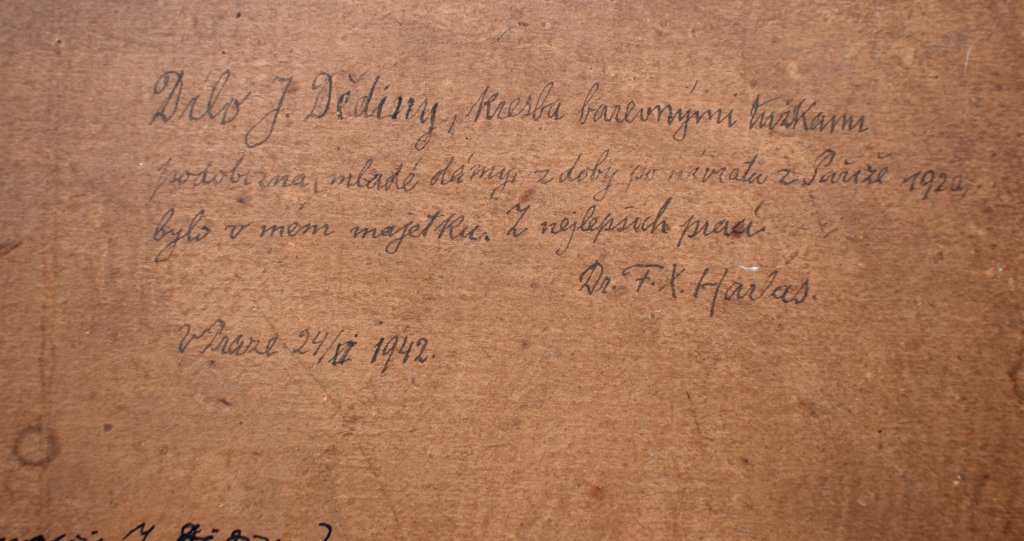 Dílo J. Dědiny, kresba barevnými tužkami
podobizna, mladé dámy, z doby po návratu z Paříže 1920,
bylo v mém majetku. Z nejlepších prací
Dr. F. X. Harlas.
V Praze 24/VI 1942.